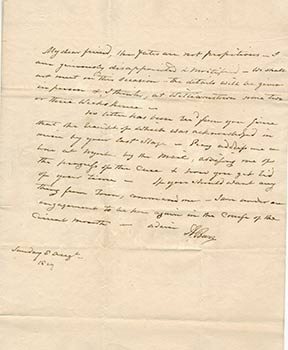 My dear friend, the fates are not propitious - I
am grievously disappointed & mortified - We shall
not meet on this occasion - the details will be given
in person & I think, at Williamstown some two
or three weeks hence -
No letter has been rec'd from you since
that the receipt of which was acknowledged in
mine by your last Stage - Pray address me a
line at Night, by the Mail, advising me of
the progress of the Cure & how you get rid
of your - If you should want any
thing from Town, command me - I am under an
engagement to be here again in the course of the
current month - adieu
A. Burr
Sunday 8 Augt.